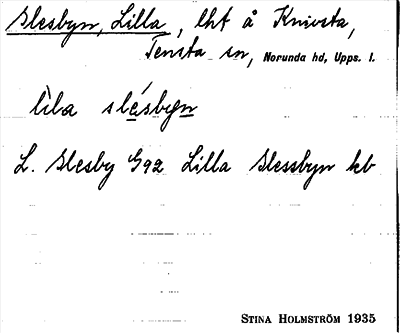 Slesbyn, Lilla, lht å Knivsta,
Tensta sn, Norunda hd, Upps. l.
lìla slésbyn
L. Slesby G92 Lilla Slessbyn kb
STINA HOLMSTRÖM 1935